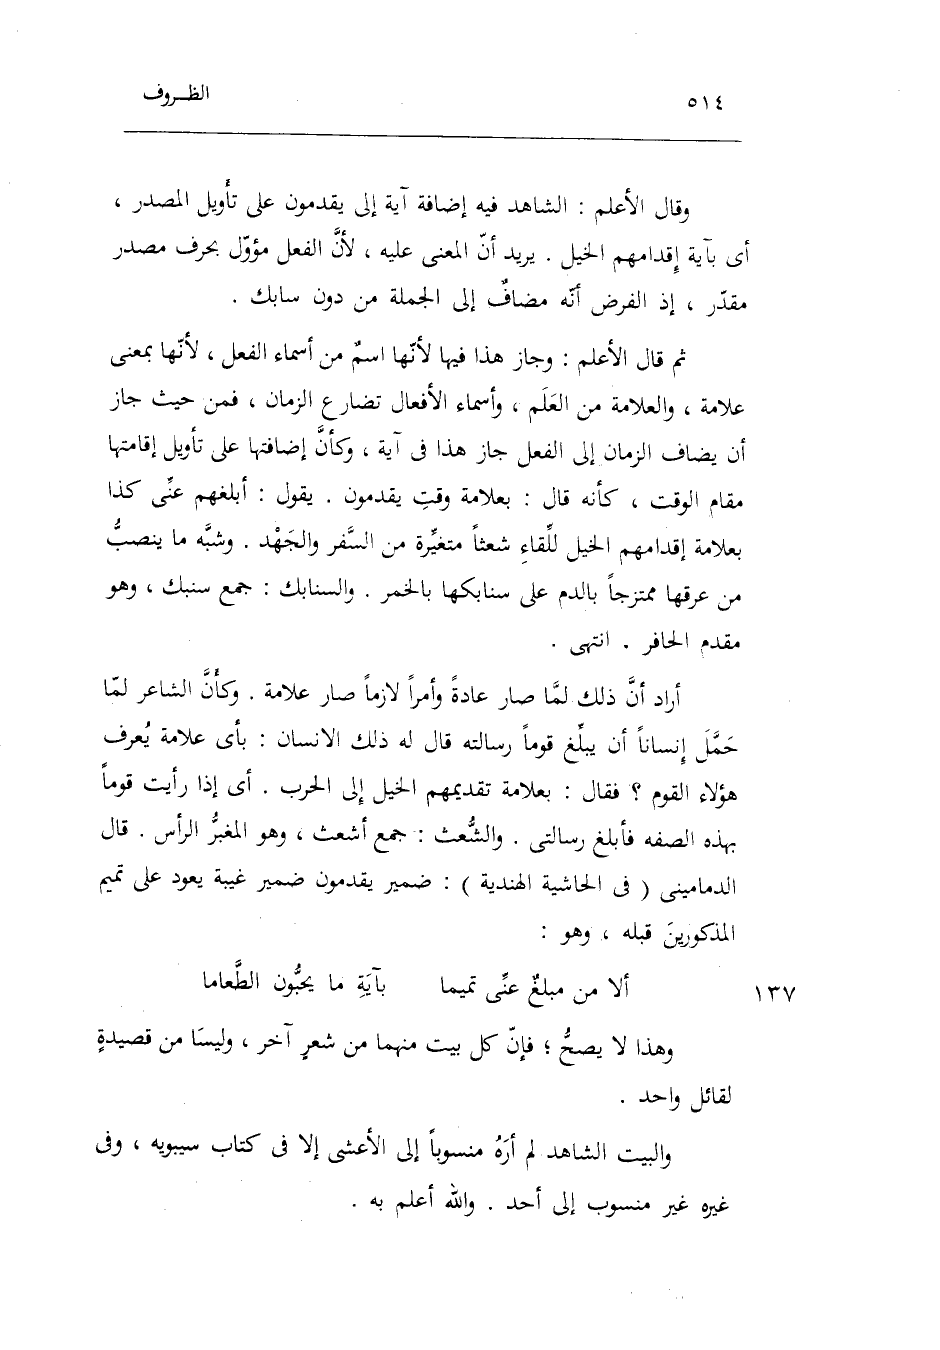 ٥١٤ الظروف
وقال الأعلم : الشاهد فيه إضافة آية إلى يقدمون على تأويل المصدر ،
أى بآية إقدامهم الخيل . يريد أنّ المعنى عليه ، لأنَّ الفعل مؤوّل بحرف مصدر
مقدّر ، إذ الفرض أنّه مضافٌ إلى الجملة من دون سابك .
ثم قال الأعلم : وجاز هذا فيها لأنّها اسمٌ من أسماء الفعل ، لأنّها بمعنى
علامة ، والعلامة من العَلَم ، وأسماء الأفعال تضارع الزمان ، فمن حيث جاز
أن يضاف الزمان إلى الفعل جاز هذا فى آية ، وكأنَّ إضافتها على تأويل إقامتها
مقام الوقت ، كأنه قال : بعلامة وقتِ يقدمون . يقول : أبلغهم عنِّى كذا
بعلامة إقدامهم الخيل للِّقاءِ شعثاً متغيِّرة من السَّفر والجَهْد . وشبَّه ما ينصبُّ
من عرقها ممتزجاً بالدم على سنابكها بالخمر . والسنابك : جمع سنبك ، وهو
مقدم الحافر . انتهى .
أراد أنَّ ذلك لمَّا صار عادةً وأمراً لازماً صار علامة . وكأنَّ الشاعر لمّا
حَمَّلَ إنساناً أن يبلّغ قوماً رسالته قال له ذلك الانسان : بأى علامة يُعرف
هؤلاء القوم ؟ فقال : بعلامة تقديمهم الخيل إلى الحرب . أى إذا رأيت قوماً
بهذه الصفه فأبلغ رسالتى . والشُّعث : جمع أشعث ، وهو المغبرُّ الرأس . قال
الدمامينى ( فى الحاشية الهندية ) : ضمير يقدمون ضمير غيبة يعود على تميم
المذكورينَ قبله ، وهو :
١٣٧ ألا من مبلغٌ عنِّى تميما بآيَةِ ما يحبُّون الطَّعاما
وهذا لا يصحُّ ؛ فإنّ كل بيت منهما من شعرٍ آخر ، وليسَا من قصيدةٍ
لقائل واحد .
والبيت الشاهد لم أرَهُ منسوباً إلى الأعشى إلا فى كتاب سيبويه ، وفى
غيره غير منسوب إلى أحد . والله أعلم به .